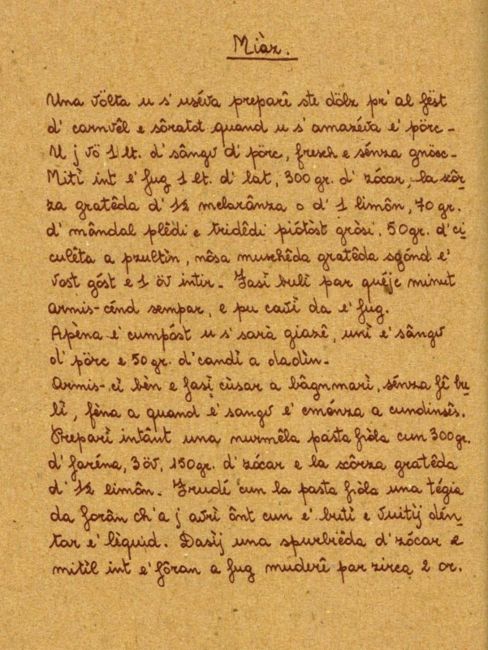 Miàz.
Una vôlta u s' uséva preparê ste dölz pr' al fëst
d' carnvêl e sôratot quand u s' amazéva e' pörc -
U j vö 1 lt. d' sângv d' pörc, fresch e sénza gnösc -
Mitì int e' fug 1 lt. d' lat, 300 gr. d' zócar, la scôr-
za gratêda d' 1/2 melarânza o d' 1 limôn, 70 gr.
d' mândal plêdi e tridêdi piótòst gròsi, 50 gr. d' ci
culêta a pzultìn, nôsa muschêda gratêda sgónd e'
vost góst e 1 öv intir - Fasì bulì par quéjc minut
armis-cénd sempar, e pu cavì da e' fug.
Apèna e' cumpóst u s' sarà giazê, unì e' sângv
d' pörc e 50 gr. d' candì a dadìn -
Armis-cì bèn e fasì cùsar a bâgnmarì, sénza fê bu
lì, fèna a quand e' sangv e' cménza a cundinsês.
Preparì intânt una nurmêla pasta fiòla cun 300 gr.
d' faréna, 3 öv, 150 gr. d' zócar e la scôrza gratêda
d' 1/2 limôn - Frudé cun la pasta fiòla una tégia
da forân ch' a j avrì ônt cun e' butì e vuitìj dén
tar e' lìquid. Dasìj una spurbiêda d' zócar e
mitìl int e' fôran a fug muderê par zirca 2 or.